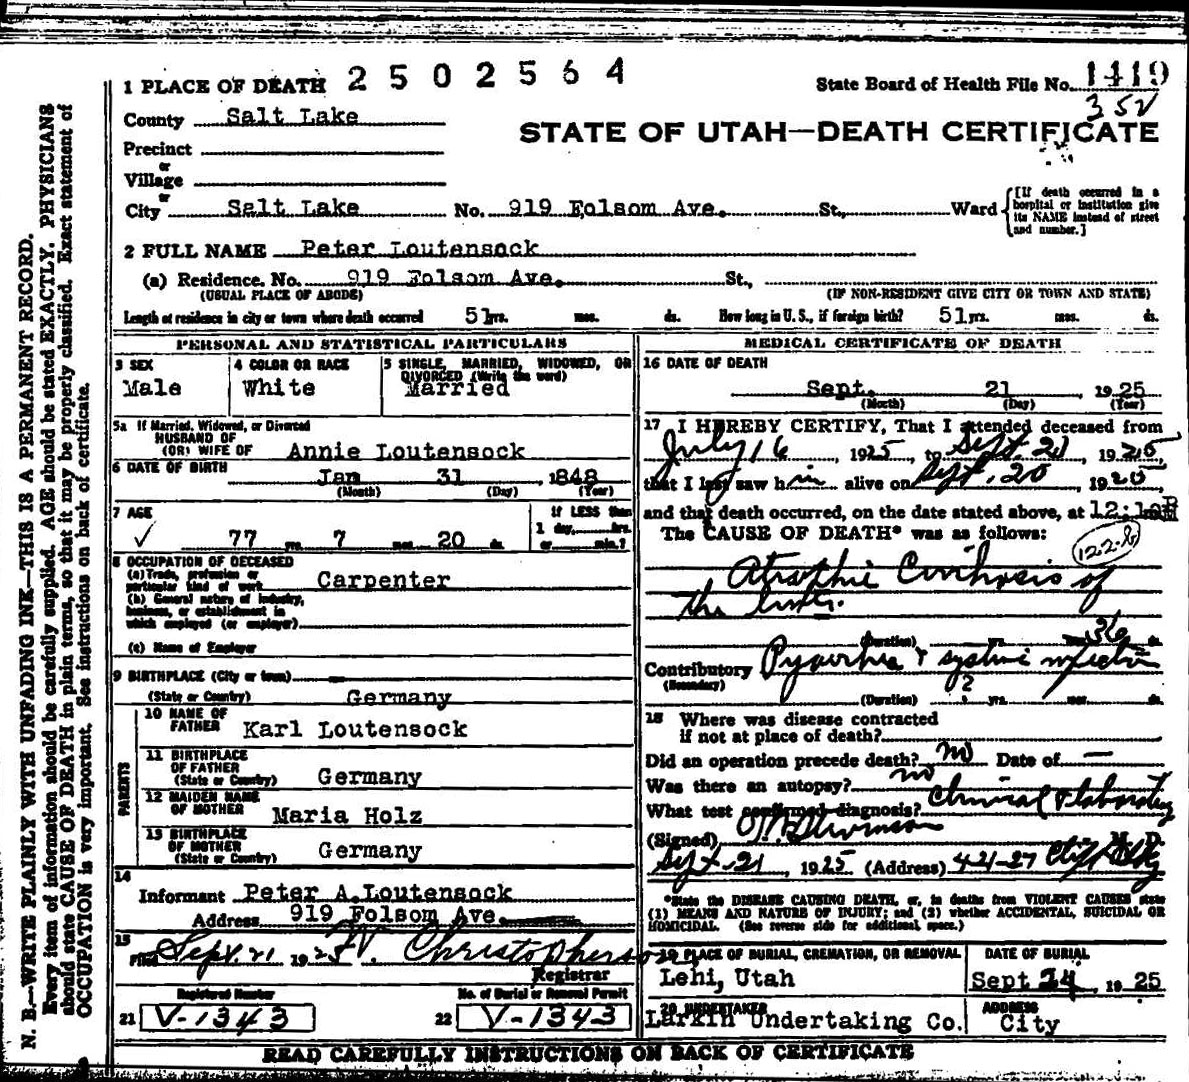 1 PLACE OF DEATH 2502564
State Board of Health File No. 1419
352
County Salt Lake
STATE OF UTAH—DEATH CERTIFICATE
Precinct
or
Village
or
City Salt Lake No. 919 Folsom Ave. St., Ward
[If death occurred in a hospital or institution give its NAME instead of street and number.]
2 FULL NAME Peter Loutensock
(a) Residence. No. 919 Folsom Ave. St.,
(USUAL PLACE OF ABODE) (IF NON-RESIDENT GIVE CITY OR TOWN AND STATE)
Length of residence in city or town where death occurred 51 yrs. mos. ds. How long in U.S., if foreign birth? 51 yrs. mos. ds.
PERSONAL AND STATISTICAL PARTICULARS
3 SEX
Male
4 COLOR OR RACE
White
5 SINGLE, MARRIED, WIDOWED, OR
DIVORCED (Write the word)
Married
5a If Married, Widowed, or Divorced
HUSBAND OF
(OR) WIFE OF Annie Loutensock
6 DATE OF BIRTH Jan 31 , 1848
(Month) (Day) (Year)
7 AGE
77 yrs. 7 mos. 20 ds.
If LESS than
1 day,....hrs.
or....min.?
8 OCCUPATION OF DECEASED
(a) Trade, profession or
particular kind of work Carpenter
(b) General nature of industry,
business, or establishment in
which employed (or employer)
(c) Name of Employer
9 BIRTHPLACE (City or town)
(State or Country) Germany
PARENTS
10 NAME OF
FATHER Karl Loutensock
11 BIRTHPLACE
OF FATHER
(State or Country) Germany
12 MAIDEN NAME
OF MOTHER Maria Holz
13 BIRTHPLACE
OF MOTHER
(State or Country) Germany
14
Informant Peter A. Loutensock
Address 919 Folsom Ave.
15
Filed Sept. 21 1925 W. Christopherson
Registrar
Registered Number No. of Burial or Removal Permit
21 V-1343 22 V-1343
MEDICAL CERTIFICATE OF DEATH
16 DATE OF DEATH
Sept. 21 1925
(Month) (Day) (Year)
17 I HEREBY CERTIFY, That I attended deceased from
July 16, 1925, to Sept. 21, 1925,
that I last saw him alive on Sept. 20, 1925,
and that death occurred, on the date stated above, at 12:10
The CAUSE OF DEATH* was as follows:
Atrophic Cirrhosis of
the liver.
(Duration) yrs. mos. 36 ds.
Contributory Pyorrhea & systemic infection
(Secondary)
(Duration) ? yrs. mos. ds.
18 Where was disease contracted
if not at place of death?
Did an operation precede death? no Date of —
Was there an autopsy? no
What test confirmed diagnosis? Clinical & laboratory
(Signed) M. D.
Sept. 21, 1925 (Address) 421-27 Clift Bldg
*State the DISEASE CAUSING DEATH, or, in deaths from VIOLENT CAUSES state
(1) MEANS AND NATURE OF INJURY; and (2) whether ACCIDENTAL, SUICIDAL OR
HOMICIDAL. (See reverse side for additional space.)
19 PLACE OF BURIAL, CREMATION, OR REMOVAL
Lehi, Utah
DATE OF BURIAL
Sept 24, 1925
20 UNDERTAKER
Larkin Undertaking Co.
ADDRESS
City
READ CAREFULLY INSTRUCTIONS ON BACK OF CERTIFICATE
N. B.—WRITE PLAINLY WITH UNFADING INK—THIS IS A PERMANENT RECORD.
Every item of information should be carefully supplied. AGE should be stated EXACTLY. PHYSICIANS
should state CAUSE OF DEATH in plain terms, so that it may be properly classified. Exact statement of
OCCUPATION is very important. See instructions on back of certificate.